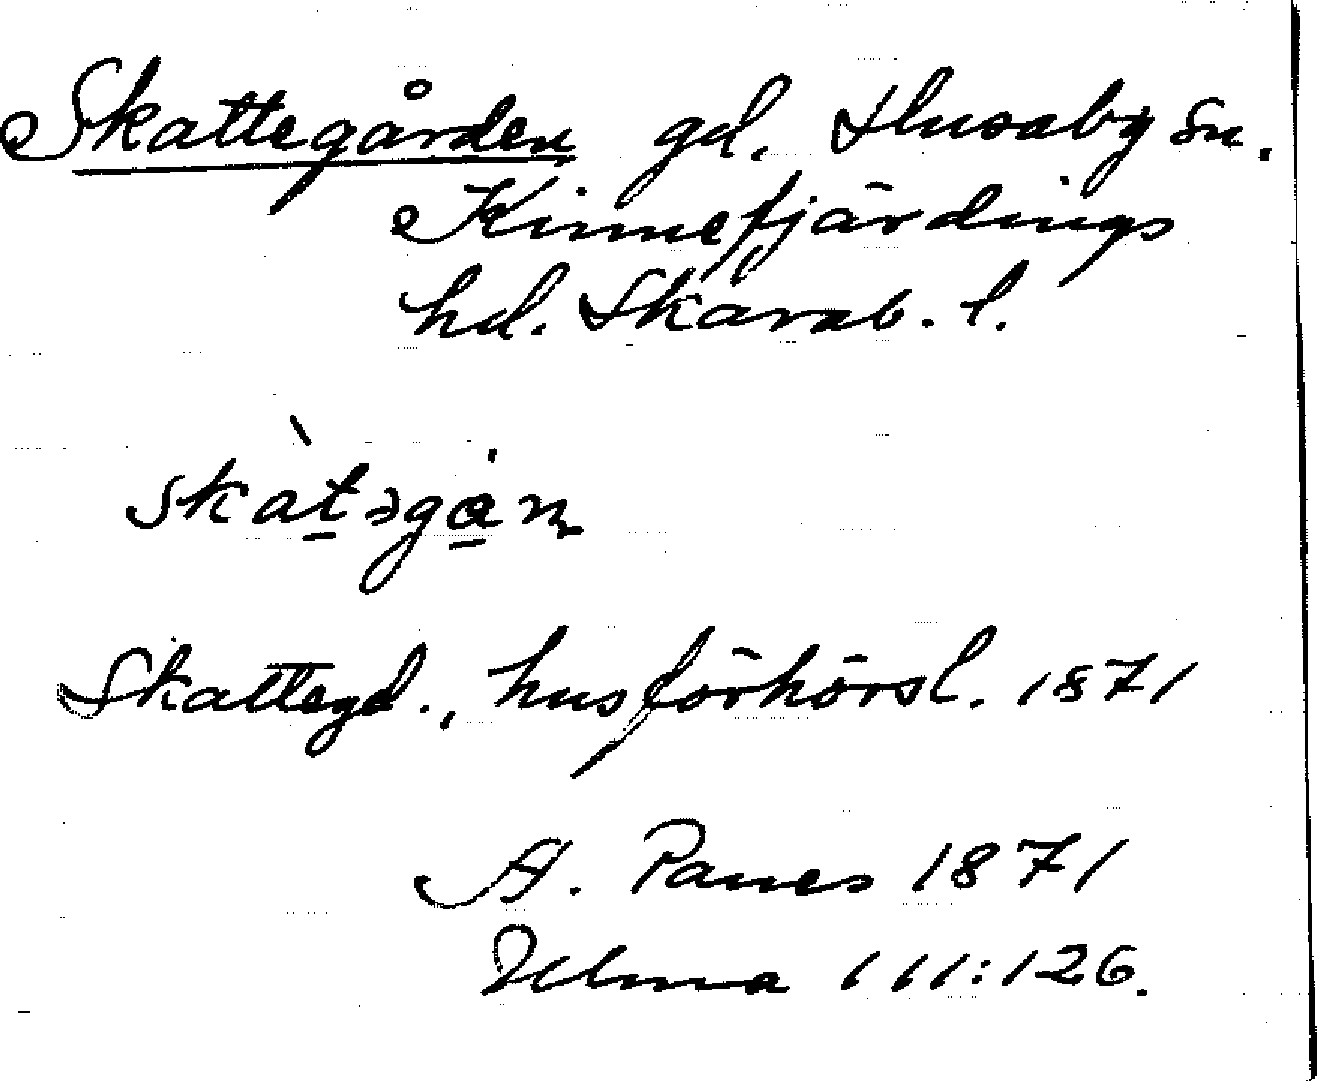 Skattegården gd. Husaby sn.
Kinnefjärdings
hd. Skarab. l.
Skattegd., husförhörsl. 1871
A. Panes 1871
Ulma 111:126.